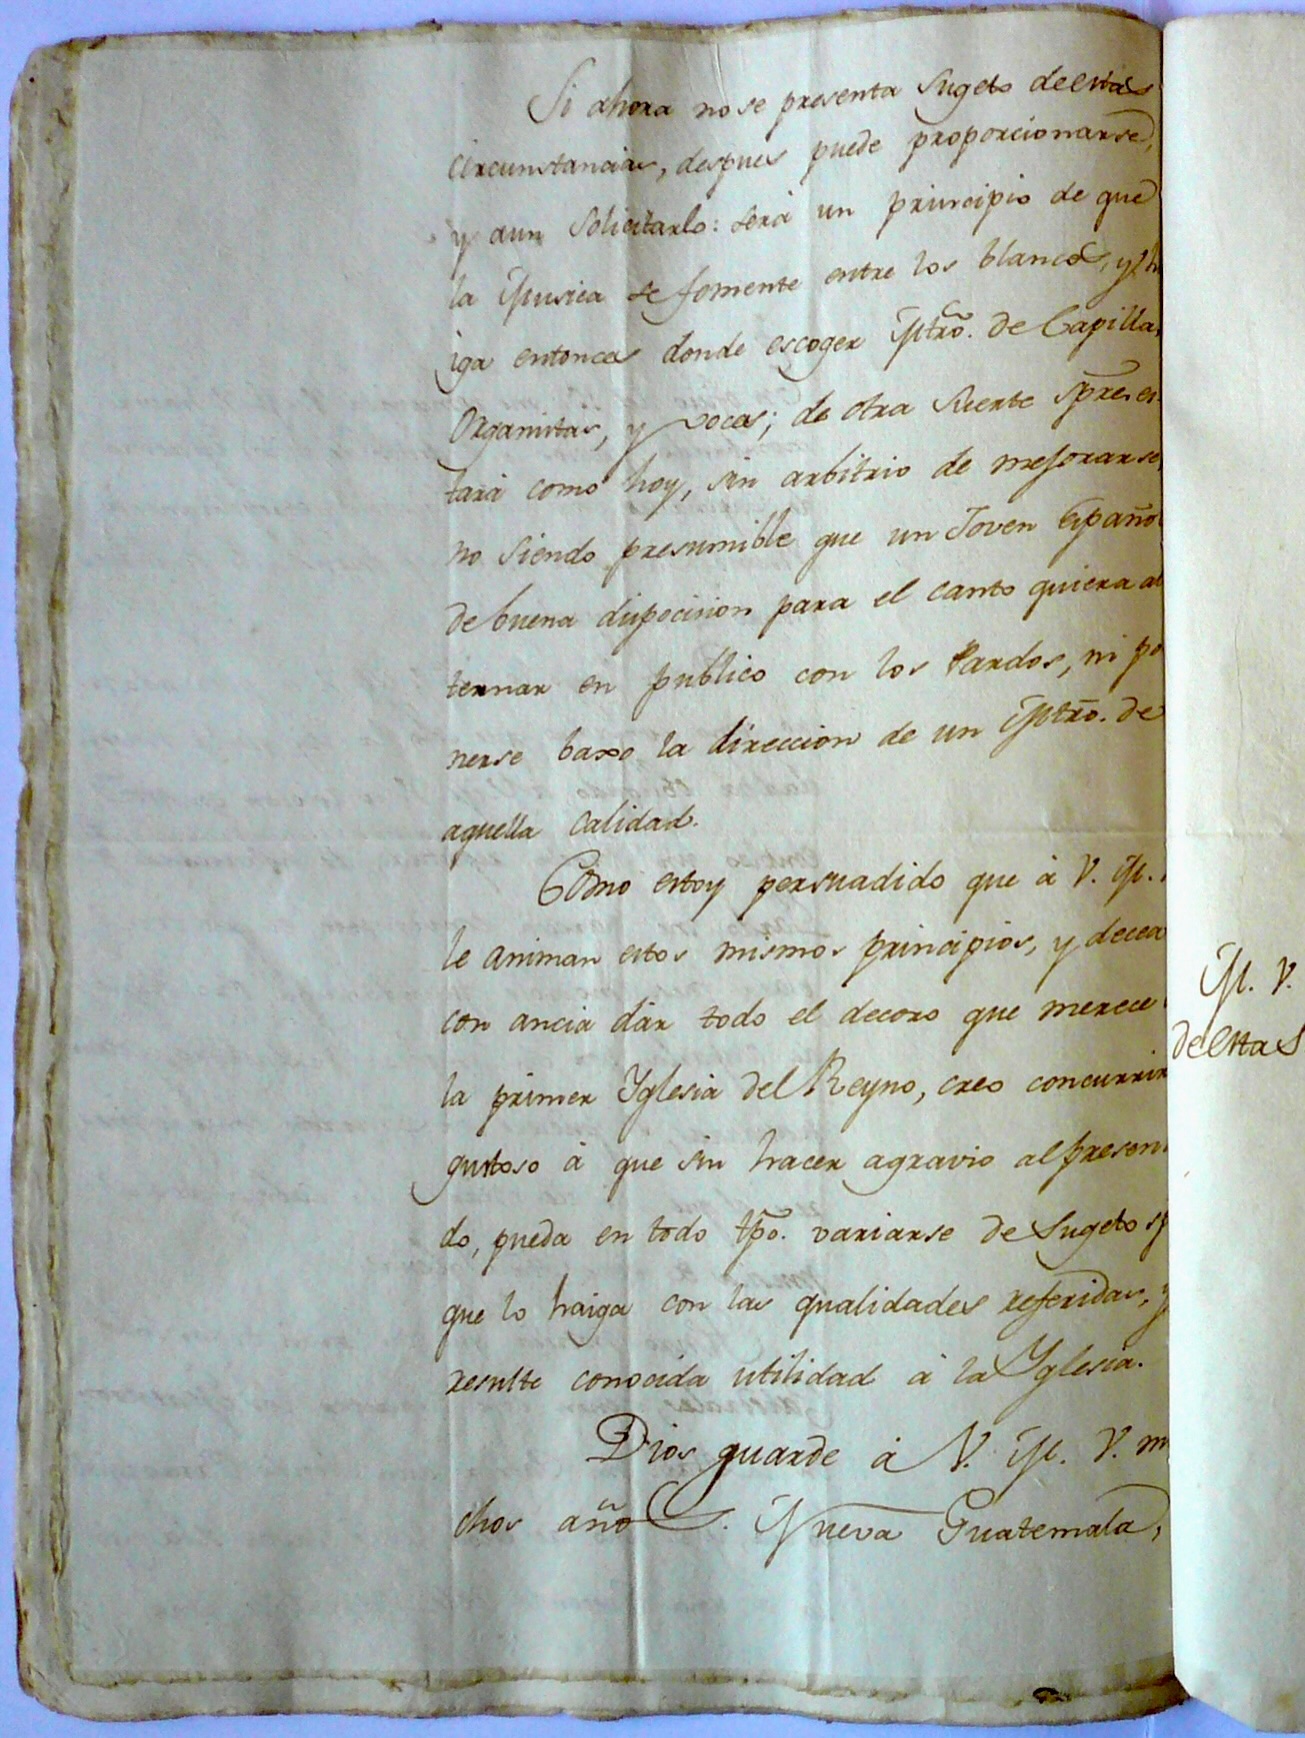 Si ahora no se presenta Sugeto de estas
circunstancias, despues puede proporcionarse,
y aun Solicitarlo: será un principio de que
la Musica se fomente entre los blancos, y ha
iga entonces donde escoger Mtrõ. de Capilla,
Organistas, y voces; de otra Suerte spre. es
tará como hoy, sin arbitrio de mejorarse,
no Siendo presumible que un Joven Españo
de buena dispocision para el canto quiera al
ternar en publico con los Pardos, ni po
nerse baxo la direccion de un Mtrõ. de
aquella Calidad.
Como estoy persuadido que á V. M.
le animan estos mismos principios, y decea
con ancia dár todo el decoro que merece
la primer Yglesia del Reyno, creo concurrir
gustoso á que sin hacer agravio al presen
do, pueda en todo tpõ. variarse de Sugeto
que lo haiga con las qualidades referidas, y
resulte conocida utilidad á la Yglesia.
Dios guarde á V. M. V. m
chos años. Nueva Guatemala,
M. V.
de esta S